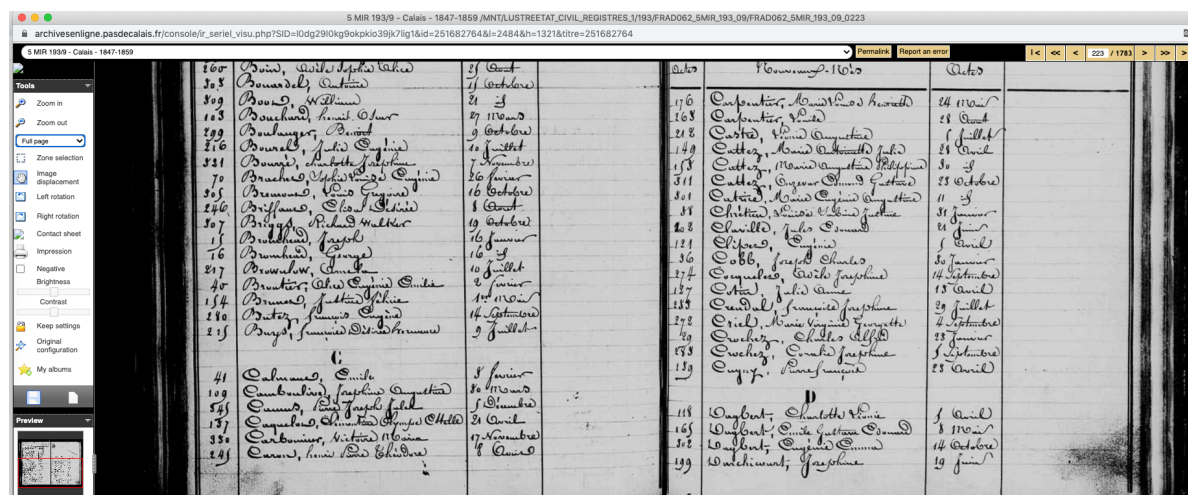 5 MIR 193/9 - Calais - 1847-1859 /MNT/LUSTREETAT_CIVIL_REGISTRES_1/193/FRAD062_5MIR_193_09/FRAD062_5MIR_193_09_0223
archivesenligne.pasdecalais.fr/console/ir_seriel_visu.php?SID=l0dg29l0kg9okpkio39jk7lig1&id=251682764&l=2484&h=1321&titre=251682764
5 MIR 193/9 - Calais - 1847-1859
Permalink
Report an error
I< << < 223 / 1783 > >> >
Tools
Zoom in
Zoom out
Full page
Zone selection
Image displacement
Left rotation
Right rotation
Contact sheet
Impression
Negative
Brightness
Contrast
Keep settings
Original configuration
My albums
Preview
260 Boin, Sophie 21 Aout
308 Bomardel, Antoine 11 Octobre
309 Boon, William 21 id
103 Bouchard, henri 27 Mars
299 Boulanger, Benoit 9 Octobre
216 Boursel, Julie Eugénie 10 Juillet
331 Bourré, charlotte Joséphine 7 Novembre
70 Sophie Louise Eugénie 26 fevrier
305 Louis 16 Octobre
246 Briffaux, Elisa Désirée 8 Aout
307 Briggs, Richard Walker 19 Octobre
15 Bromhead, Joseph 16 Janvier
16 Bromhead, George 16 id
217 Brownlow, Amelia 10 Juillet
40 Broutier, Alice Eugénie Emilie 2 fevrier
154 Brunet, Justine 1er Mai
280 Butez, françois Eugène 14 Septembre
215 Buys, Désirée 9 Juillet
C
41 Calmant, Emile 3 fevrier
109 Joséphine Augustine 30 Mars
345 Camus, Pierre Joseph Jules 5 Décembre
137 Olympe 21 Avril
330 Carbonnier, Victoire Marie 17 Novembre
245 Caron, henri Pierre Théodore 8 Aout
Actes Nouveaux-Nés Actes
176 Carpentier, Marie Louise 24 Mai
268 Carpentier, 28 Aout
212 Castre, Léonie Augustine 5 Juillet
149 Cattez, Marie Antoinette Julie 28 Avril
158 Cattez, Marie Augustine Philippine 30 id
311 Cattez, Edmond Gustave 23 Octobre
301 Marie Eugénie Augustine 11 id
38 Chrétien, Louise Justine 31 Janvier
202 Claville, Jules Edouard 21 Juin
121 Clipet, Eugénie 5 Avril
36 Cobb, Joseph Charles 30 Janvier
274 Cocquelin, Adèle Joséphine 14 Septembre
127 Julie Anne 13 Avril
233 Crendal, françoise Joséphine 29 Juillet
272 Criel, Marie Virginie Georgette 4 Septembre
29 Crochez, Charles Alfred 23 Janvier
273 Crochez, Coralie Joséphine 5 Septembre
139 Cugny, Pierre françois 23 Avril
D
118 Dagbert, Charlotte Léonie 5 Avril
165 Dagbert, Emile Gustave Edouard 8 Mai
302 Dagbert, Eugénie Emma 14 Octobre
199 Darchicourt, Joséphine 19 Juin